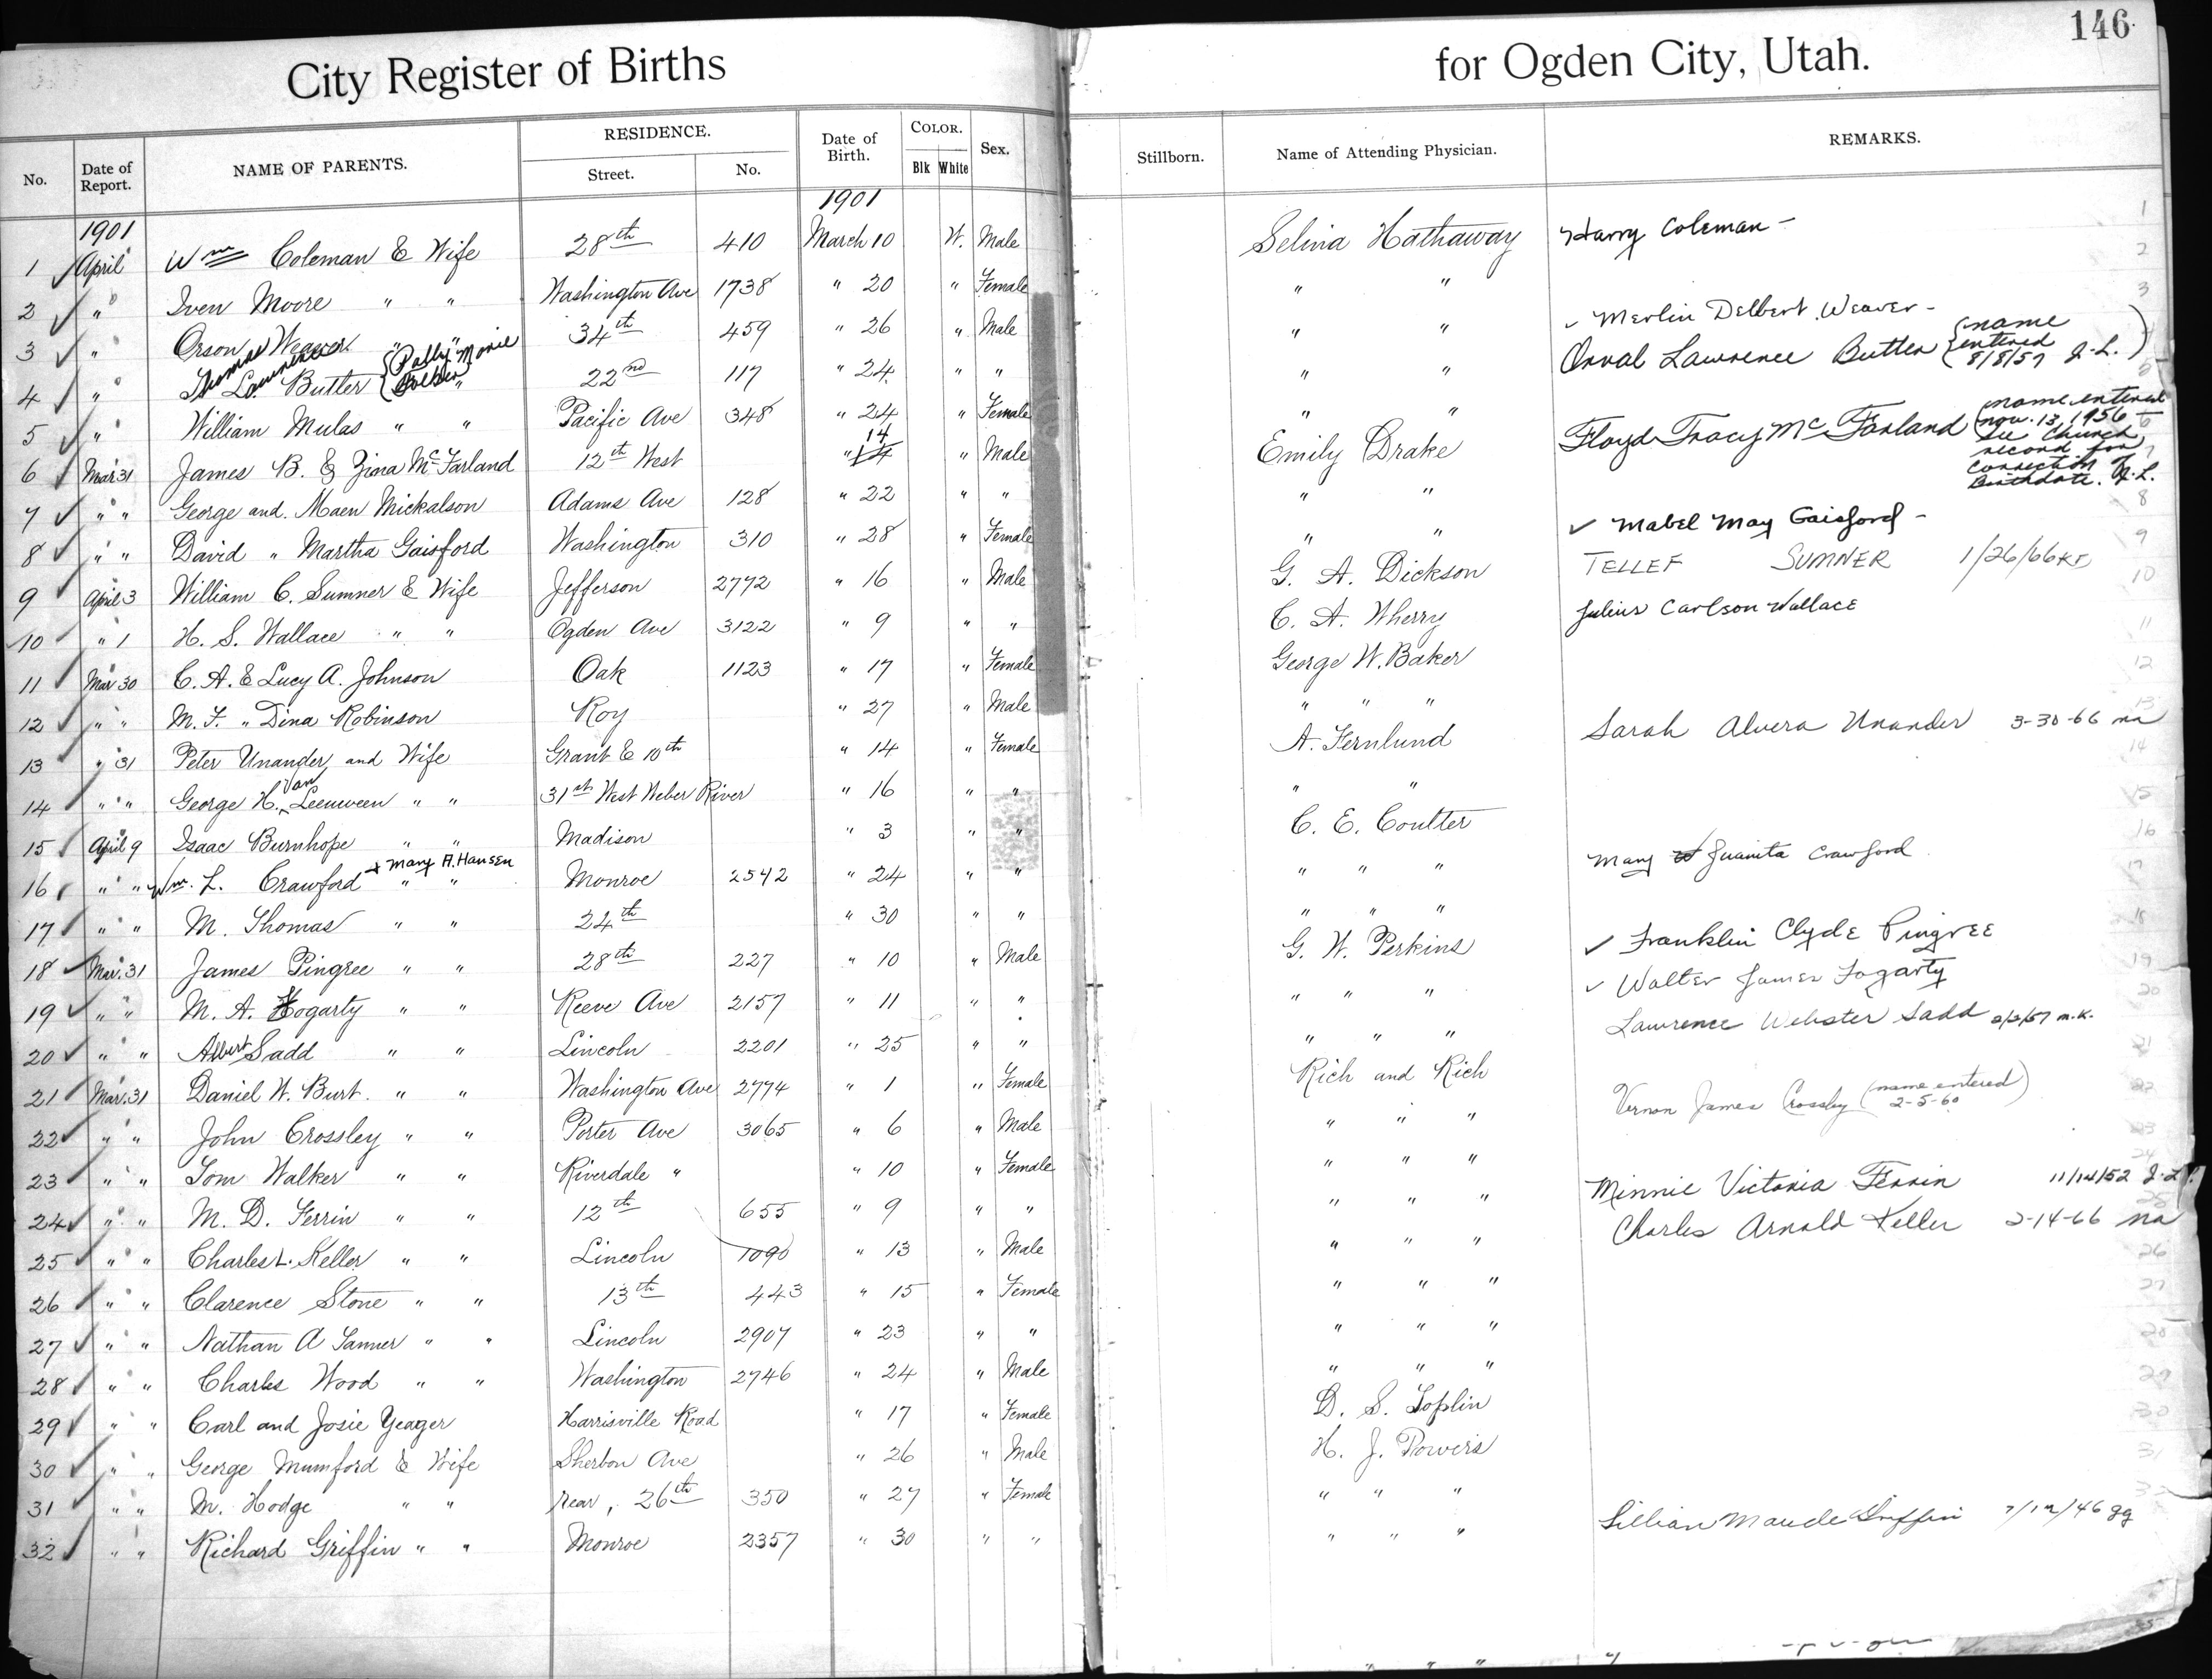 146
City Register of Births for Ogden City, Utah.
No. Date of Report. NAME OF PARENTS. RESIDENCE. Street. No. Date of Birth. COLOR. Blk White Sex. Stillborn. Name of Attending Physician. REMARKS.
1901 1901
1 April Wm Coleman & Wife 28th 410 March 10 W. Male Selina Hathaway Harry Coleman -
2 " Iven Moore " " Washington Ave 1738 " 20 " Female " "
3 " Orson Weaver " " 34th 459 " 26 " Male " " Merlin Delbert Weaver -
4 " Thomas Lawrence Butler { Polly Marie " 22nd 117 " 24 " " " " Orval Lawrence Butler { name entered 8/8/57 J.L. )
5 " William Mulas " " Pacific Ave 348 " 24 " Female " "
6 Mar 31 James B. & Zina McFarland 12th West " 14 " Male Emily Drake Floyd Tracy McFarland ( name entered nov. 13, 1956 See Church record for correction of birthdate. J.L.
7 " " George and Maen Mickalson Adams Ave 128 " 22 " " " "
8 " " David " Martha Gaisford Washington 310 " 28 " Female " " Mabel May Gaisford -
9 April 3 William C. Sumner & Wife Jefferson 2772 " 16 " Male G. A. Dickson TELLEF SUMNER 1/26/66 KF
10 " 1 H. S. Wallace " " Ogden Ave 3122 " 9 " " C. A. Wherry Julius Carlson Wallace
11 Mar 30 C. A. & Lucy A. Johnson Oak 1123 " 17 " Female George W. Baker
12 " " M. F. " Dina Robinson Roy " 27 " Male " " "
13 " 31 Peter Unander and Wife Grant & 10th " 14 " Female A. Fernlund Sarah Alvera Unander 3-30-66 na
14 " " George H. Van Leeuween " " 31st West Weber River " 16 " " " "
15 April 9 Isaac Burnhope " " Madison " 3 " " C. E. Coulter
16 " " Wm. L. Crawford + Mary A. Hansen " " Monroe 2542 " 24 " " " " " Mary Juanita Crawford
17 " " M. Thomas " " 24th " 30 " " " " "
18 Mar. 31 James Pingree " " 28th 227 " 10 " Male G. W. Perkins Franklin Clyde Pingree
19 " " M. A. Fogarty " " Reeve Ave 2157 " 11 " " " " " Walter James Fogarty
20 " " Albert Sadd " " Lincoln 2201 " 25 " " " " " Lawrence Webster Sadd 2/2/57 m.k.
21 Mar. 31 Daniel W. Burt. " " Washington Ave 2774 " 1 " Female Rich and Rich
22 " " John Crossley " " Porter Ave 3065 " 6 " Male " " " Vernon James Crossley ( name entered 2-5-60 )
23 " " Tom Walker " " Riverdale " " 10 " Female " " "
24 " " M. D. Ferrin " " 12th 655 " 9 " " " " " Minnie Victoria Ferrin 11/14/52 J.L.
25 " " Charles L. Keller " " Lincoln 1090 " 13 " Male " " " Charles Arnold Keller 2-14-66 na
26 " " Clarence Stone " " 13th 443 " 15 " Female " " "
27 " " Nathan A Tanner " " Lincoln 2907 " 23 " " " " "
28 " " Charles Wood " " Washington 2746 " 24 " Male " " "
29 " " Carl and Josie Yeager Harrisville Road " 17 " Female D. S. Joplin
30 " " George Mumford & Wife Sherbon Ave " 26 " Male H. J. Powers
31 " " M. Hodge " " rear, 26th 350 " 27 " Female " " "
32 " " Richard Griffin " " Monroe 2357 " 30 " " " " " Lillian Maude Griffin 7/12/46 gg